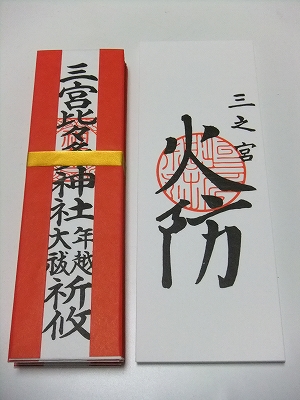 三宮比々多神社年越大祓祈攸
三之宮
火防